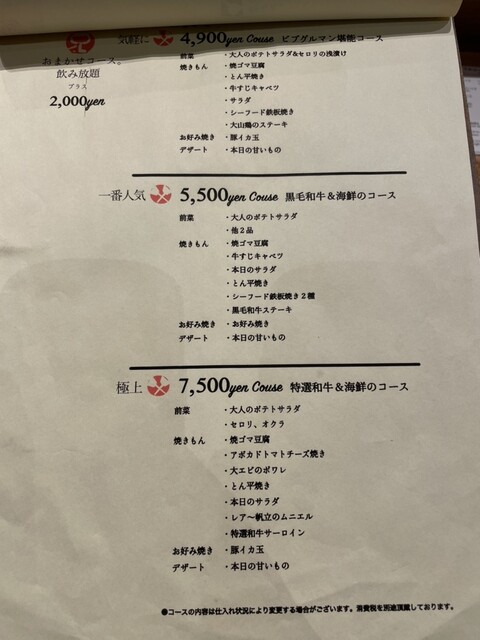 気軽に 4,900yen Couse ビブグルマン堪能コース
おまかせコース。
飲み放題
プラス
2,000yen
前菜 ・大人のポテトサラダ&セロリの浅漬け
焼きもん ・焼ゴマ豆腐
・とん平焼き
・牛すじキャベツ
・サラダ
・シーフード鉄板焼き
・大山鶏のステーキ
お好み焼き ・豚イカ玉
デザート ・本日の甘いもの
一番人気 5,500yen Couse 黒毛和牛&海鮮のコース
前菜 ・大人のポテトサラダ
・他2品
焼きもん ・焼ゴマ豆腐
・牛すじキャベツ
・本日のサラダ
・とん平焼き
・シーフード鉄板焼き2種
・黒毛和牛ステーキ
お好み焼き ・お好み焼き
デザート ・本日の甘いもの
極上 7,500yen Couse 特選和牛&海鮮のコース
前菜 ・大人のポテトサラダ
・セロリ、オクラ
焼きもん ・焼ゴマ豆腐
・アボカドトマトチーズ焼き
・大エビのポワレ
・とん平焼き
・本日のサラダ
・レア〜帆立のムニエル
・特選和牛サーロイン
お好み焼き ・豚イカ玉
デザート ・本日の甘いもの
●コースの内容は仕入れ状況により変更する場合がございます。消費税を別途頂戴しております。